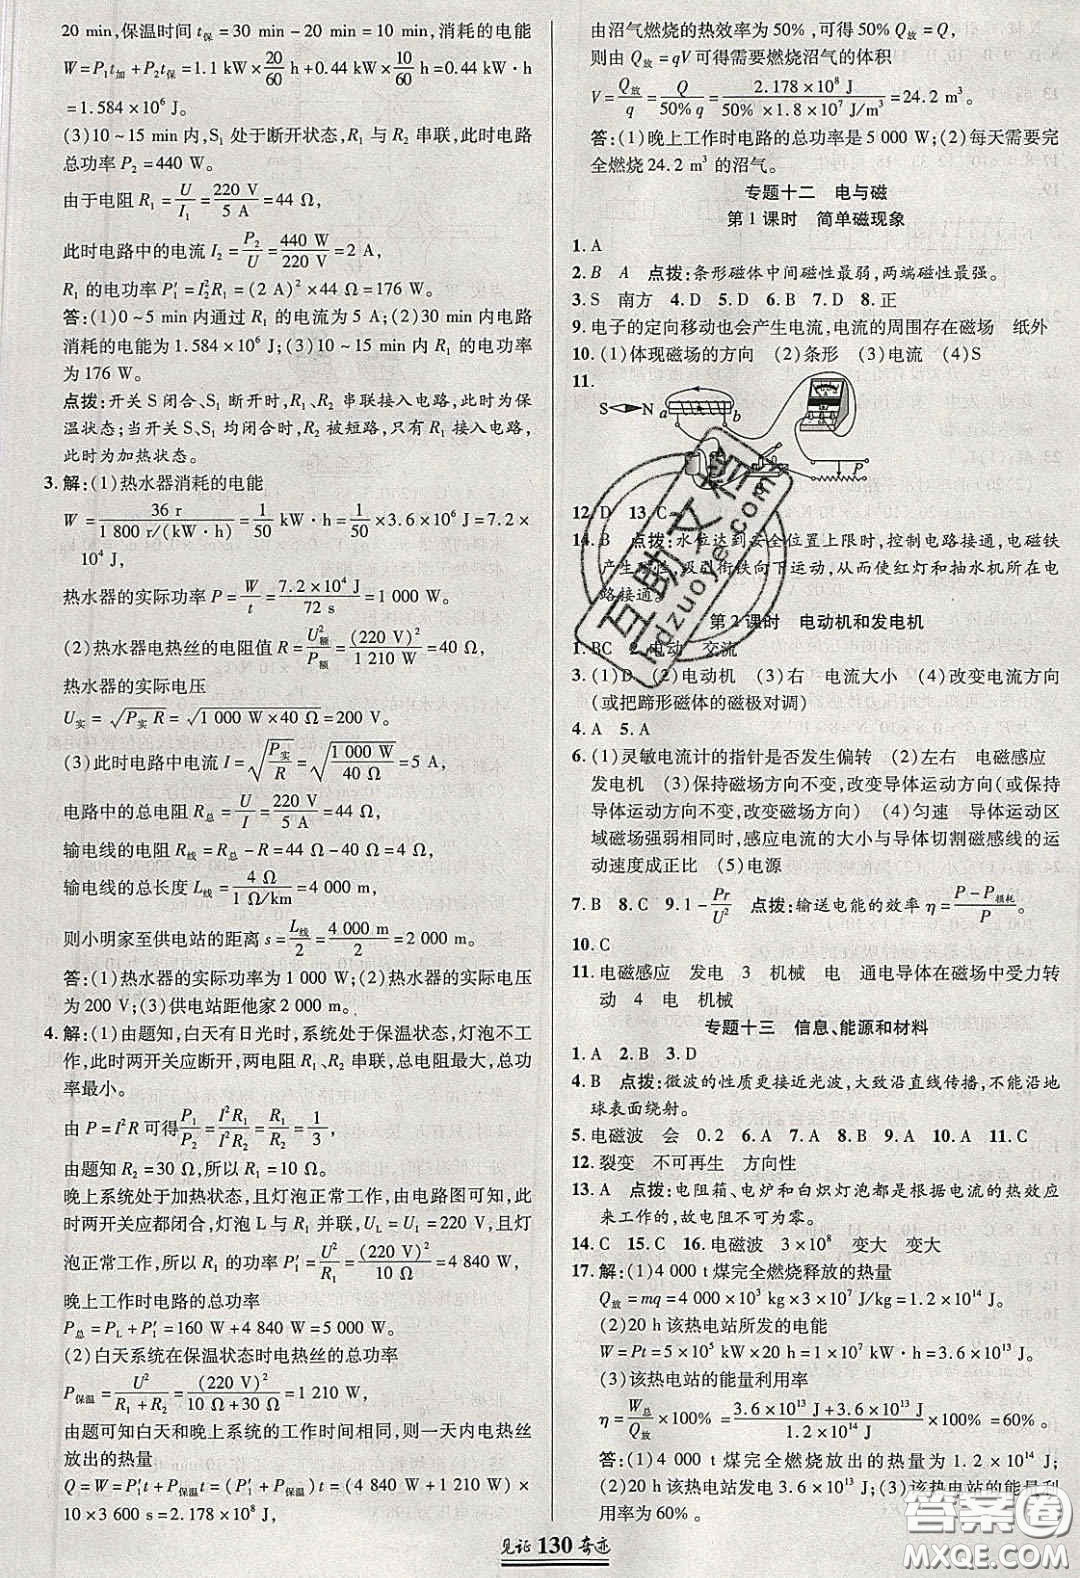 20 min,保温时间 t保=30 min-20 min=10 min,消耗的电能
W=P₁t加+P₂t保=1.1 kW×20/60 h+0.44 kW×10/60 h=0.44 kW·h
=1.584×10⁶ J。
(3)10~15 min内,S₁处于断开状态,R₁与R₂串联,此时电路
总功率 P₂=440 W。
由于电阻 R₁=U/I₁=220 V/5 A=44 Ω,
此时电路中的电流 I₂=P₂/U=440 W/220 V=2 A,
R₁的电功率 P₁′=I₂²R₁=(2 A)²×44 Ω=176 W。
答:(1)0~5 min内通过R₁的电流为5 A;(2)30 min内电路
消耗的电能为1.584×10⁶ J;(3)10~15 min内R₁的电功率
为176 W。
点拨:开关S闭合、S₁断开时,R₁、R₂串联接入电路,此时为保
温状态;当开关S、S₁均闭合时,R₂被短路,只有R₁接入电路,
此时为加热状态。
3.解:(1)热水器消耗的电能
W=36 r/1 800 r/(kW·h)=1/50 kW·h=1/50×3.6×10⁶ J=7.2×
10⁴ J,
热水器的实际功率 P=W/t=7.2×10⁴ J/72 s=1 000 W。
(2)热水器电热丝的电阻值 R=U额²/P额=(220 V)²/1 210 W=40 Ω,
热水器的实际电压
U实=√(P实R)=√(1 000 W×40 Ω)=200 V。
(3)此时电路中电流 I=√(P实/R)=√(1 000 W/40 Ω)=5 A,
电路中的总电阻 R总=U/I=220 V/5 A=44 Ω,
输电线的电阻 R线=R总-R=44 Ω-40 Ω=4 Ω,
输电线的总长度 L线=4 Ω/1 Ω/km=4 000 m,
则小明家至供电站的距离 s=L线/2=4 000 m/2=2 000 m。
答:(1)热水器的实际功率为1 000 W;(2)热水器的实际电压
为200 V;(3)供电站距他家2 000 m。
4.解:(1)由题知,白天有日光时,系统处于保温状态,灯泡不工
作,此时两开关应断开,两电阻R₁、R₂串联,总电阻最大,总功
率最小。
由 P=I²R 可得P₁/P₂=I²R₁/I²R₂=R₁/R₂=1/3,
由题知 R₂=30 Ω,所以 R₁=10 Ω。
晚上系统处于加热状态,且灯泡正常工作,由电路图可知,此
时两开关应都闭合,灯泡L与R₁并联,U_L=U₁=220 V,且灯
泡正常工作,所以 P₁′=U²/R₁=(220 V)²/10 Ω=4 840 W,
晚上工作时电路的总功率
P总=P_L+P₁′=160 W+4 840 W=5 000 W。
(2)白天系统在保温状态时电热丝的总功率
P保温=U²/(R₁+R₂)=(220 V)²/(10 Ω+30 Ω)=1 210 W,
由题可知白天和晚上系统的工作时间相同,则一天内电热丝
放出的热量
Q=W=P₁′t+P保温t=(P₁′+P保温)t=(4 840 W+1 210 W)×
10×3 600 s=2.178×10⁸ J,
由沼气燃烧的热效率为50%,可得50%Q放=Q,
则由 Q放=qV 可得需要燃烧沼气的体积
V=Q放/q=Q/50%q=2.178×10⁸ J/50%×1.8×10⁷ J/m³=24.2 m³。
答:(1)晚上工作时电路的总功率是5 000 W;(2)每天需要完
全燃烧24.2 m³的沼气。
专题十二 电与磁
第1课时 简单磁现象
1.A
2.B A 点拨:条形磁体中间磁性最弱,两端磁性最强。
3.S 南方 4.D 5.D 6.B 7.D 8.正
9.电子的定向移动也会产生电流,电流的周围存在磁场 纸外
10.(1)体现磁场的方向 (2)条形 (3)电流 (4)S
11.
S N a b
P
12.D 13.C
14.B 点拨:水位达到安全位置上限时,控制电路接通,电磁铁
产生磁性,吸引衔铁向下运动,从而使红灯和抽水机所在电
路接通。
第2课时 电动机和发电机
1.BC 2.电动 交流
3.(1)D (2)电动机 (3)右 电流大小 (4)改变电流方向
(或把蹄形磁体的磁极对调)
4.A 5.A
6.(1)灵敏电流计的指针是否发生偏转 (2)左右 电磁感应
发电机 (3)保持磁场方向不变,改变导体运动方向(或保持
导体运动方向不变,改变磁场方向) (4)匀速 导体运动区
域磁场强弱相同时,感应电流的大小与导体切割磁感线的运
动速度成正比 (5)电源
7.B 8.C 9.1-Pr/U² 点拨:输送电能的效率 η=(P-P损耗)/P。
10.C
11.电磁感应 发电 3 机械 电 通电导体在磁场中受力转
动 4 电 机械
专题十三 信息、能源和材料
1.A 2.B 3.D
4.B 点拨:微波的性质更接近光波,大致沿直线传播,不能沿地
球表面绕射。
5.电磁波 会 0.2 6.A 7.A 8.B 9.A 10.A 11.C
12.裂变 不可再生 方向性
13.A 点拨:电阻箱、电炉和白炽灯泡都是根据电流的热效应
来工作的,故电阻不可为零。
14.C 15.C 16.电磁波 3×10⁸ 变大 变大
17.解:(1)4 000 t煤完全燃烧释放的热量
Q放=mq=4 000×10³ kg×3×10⁷ J/kg=1.2×10¹⁴ J。
(2)20 h该热电站所发的电能
W=Pt=5×10⁵ kW×20 h=1×10⁷ kW·h=3.6×10¹³ J。
(3)该热电站的能量利用率
η=W总/Q放×100%=(3.6×10¹³ J+3.6×10¹³ J)/1.2×10¹⁴ J×100%=60%。
答:(1)4 000 t煤完全燃烧放出的热量为1.2×10¹⁴ J;
(2)20 h该热电站发电3.6×10¹³ J;(3)该热电站的能量利
用率为60%。
见证 130 奇迹
互助文档
hdzuoye.com
答案圈
MXQE.COM